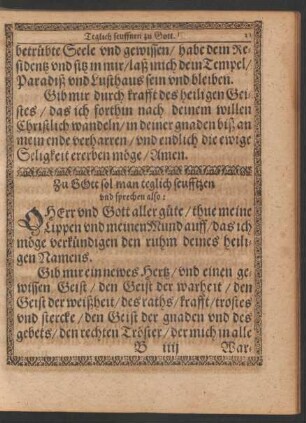 Teglich seufftzen zu Gott. 11
betrübte Seele vnd gewissen / habe dein Re-
sidentz vnd sitz in mir / laß mich dein Tempel /
Paradiß vnd Lusthaus sein vnd bleiben.
Gib mir durch krafft des heiligen Gei-
stes / das ich forthin nach deinem willen
Christlich wandeln / in deiner gnaden biß an
mein ende verharren / vnd endlich die ewige
Seligkeit ererben möge / Amen.
Zu GOtt sol man teglich seufftzen
vnd sprechen also:
O HErr vnd Gott aller güte / thue meine
Lippen vnd meinen Mund auff / das ich
möge verkündigen den ruhm deines heili-
gen Namens.
Gib mir ein newes Hertz / vnd einen ge-
wissen Geist / den Geist der warheit / den
Geist der weißheit / des raths / krafft / trostes
vnd stercke / den Geist der gnaden vnd des
gebets / den rechten Tröster / der mich in alle
B iiij War-